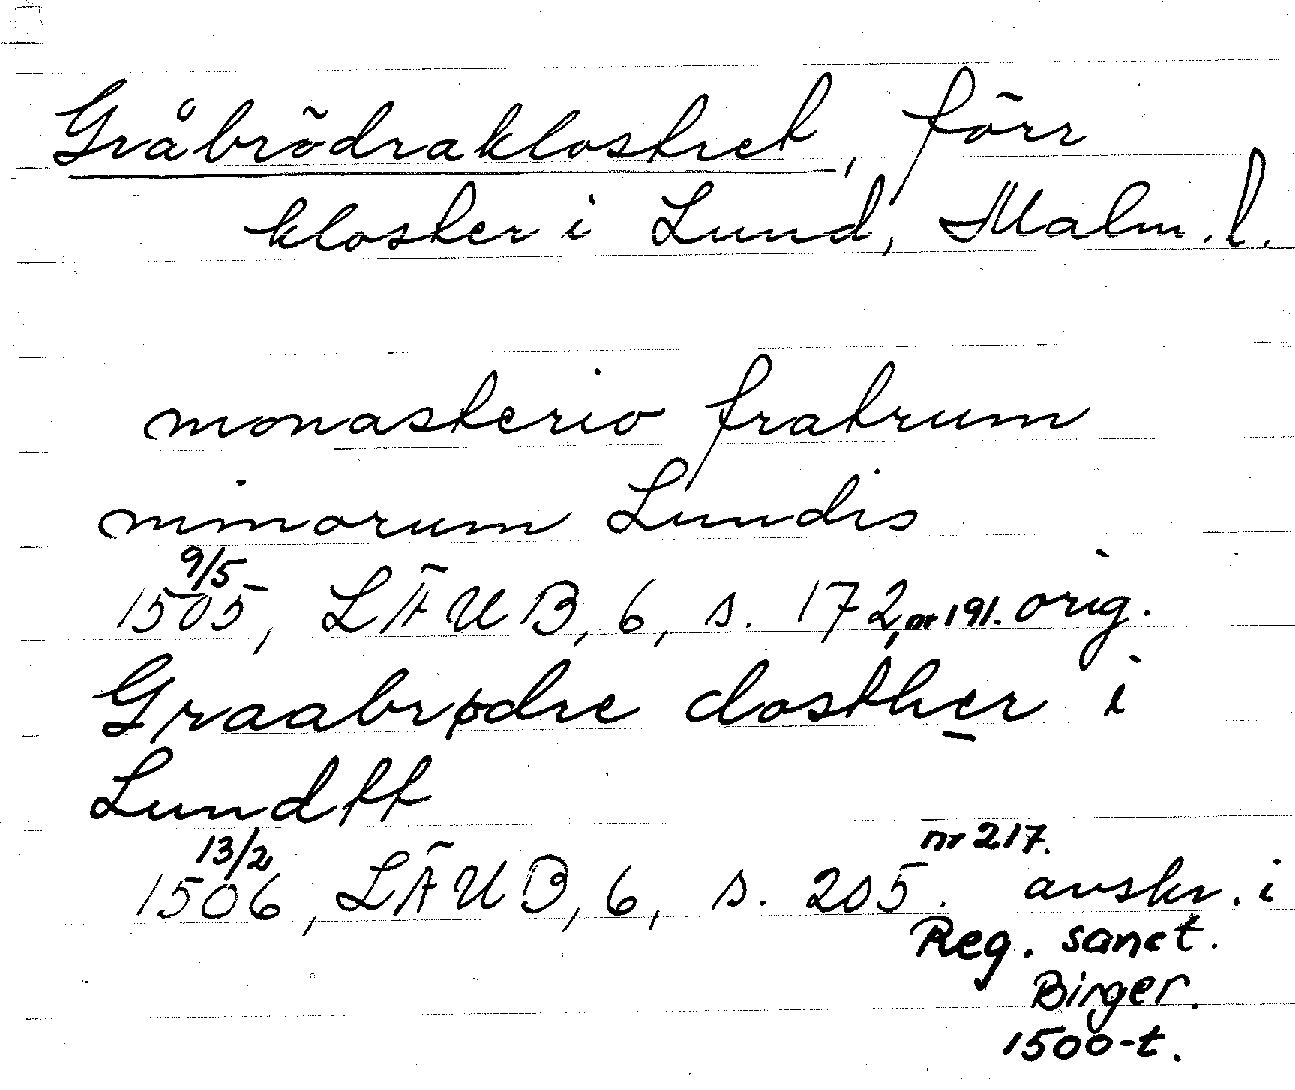 Gråbrödraklostret, förr
kloster i Lund, Malm. l.
monasterio fratrum
minorum Lundis
9/5
1505, LÄUB, 6, s. 172, nr 191. orig.
Graabrødre closther i
Lundtt
13/2 nr 217.
1506, LÄUB, 6, s. 205. avskr. i
Reg. sanct.
Birger.
1500-t.